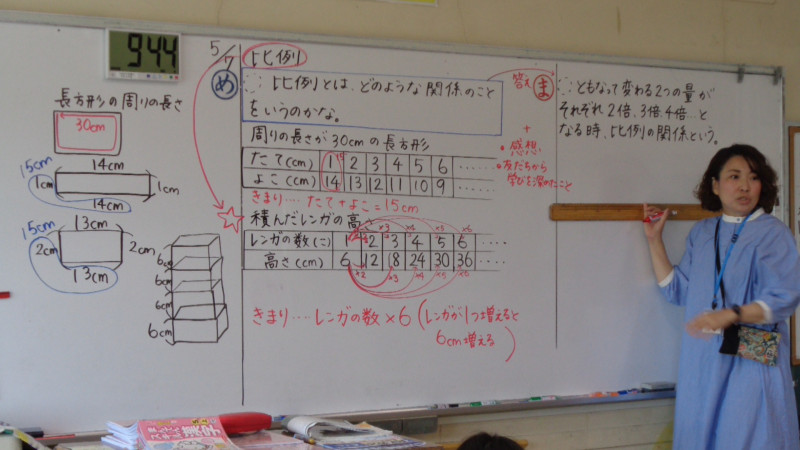 944
長方形の周りの長さ
30cm
15cm
14cm
1cm
1cm
14cm
15cm
13cm
2cm
2cm
13cm
6cm
6cm
6cm
6cm
5/7
比例
め
比例とは、どのような関係のこと
をいうのかな。
周りの長さが30cmの長方形
たて(cm) 1 2 3 4 5 6 ……
よこ(cm) 14 13 12 11 10 9 ……
きまり…たて+よこ=15cm
積んだレンガの高さ
×2 ×3 ×4 ×5 ×6
レンガの数(こ) 1 2 3 4 5 6 ……
高さ(cm) 6 12 18 24 30 36 ……
×2 ×3 ×4 ×5 ×6
きまり……レンガの数×6(レンガが1つ増えると
6cm増える)
答え
ま
+
・感想
・友だちから
学びを深めたこと
ともなって変わる2つの量が
それぞれ2倍、3倍、4倍…と
なる時、比例の関係という。